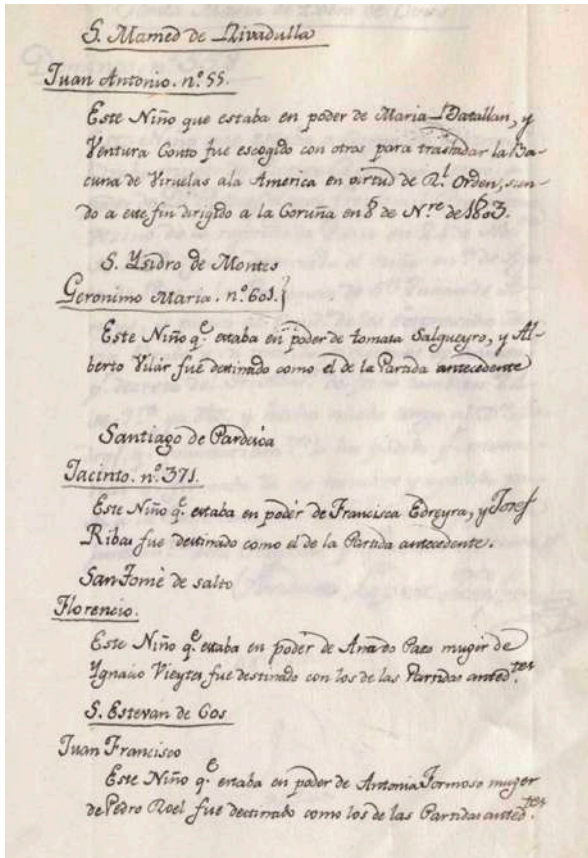 S. Mamed de Rivadulla
Juan Antonio. nº.55.
Este Niño que estaba en poder de Maria Batallan, y
Ventura Couto fue escogido con otros para trasladar la Ba-
cuna de Viruelas ala America en virtud de Rl. Orden, sien-
do a este fin dirigido a la Coruña en 8 de Nre. de 1803.
S. Ysidro de Montes
Geronimo Maria. nº.601.
Este Niño qe. estaba en poder de tomata Salgueyro, y Al-
berto Vilár fue destinado como el de la Partida antecedente
Santiago de Pardesoa
Jacinto. nº.371.
Este Niño qe. estaba en poder de Francisca Edreyra, y Josef
Ribas fue destinado como el de la Partida antecedente.
San Tomè de salto
Florencio.
Este Niño qe. estaba en poder de Ana do Pazo muger de
Ygnacio Vieytes fue destinado con los de las Partidas anted.tes
S. Estevan de Cos
Juan Francisco
Este Niño qe. estaba en poder de Antonia Formoso muger
de Pedro Roel fue destinado como los de las Partidas anted.tes